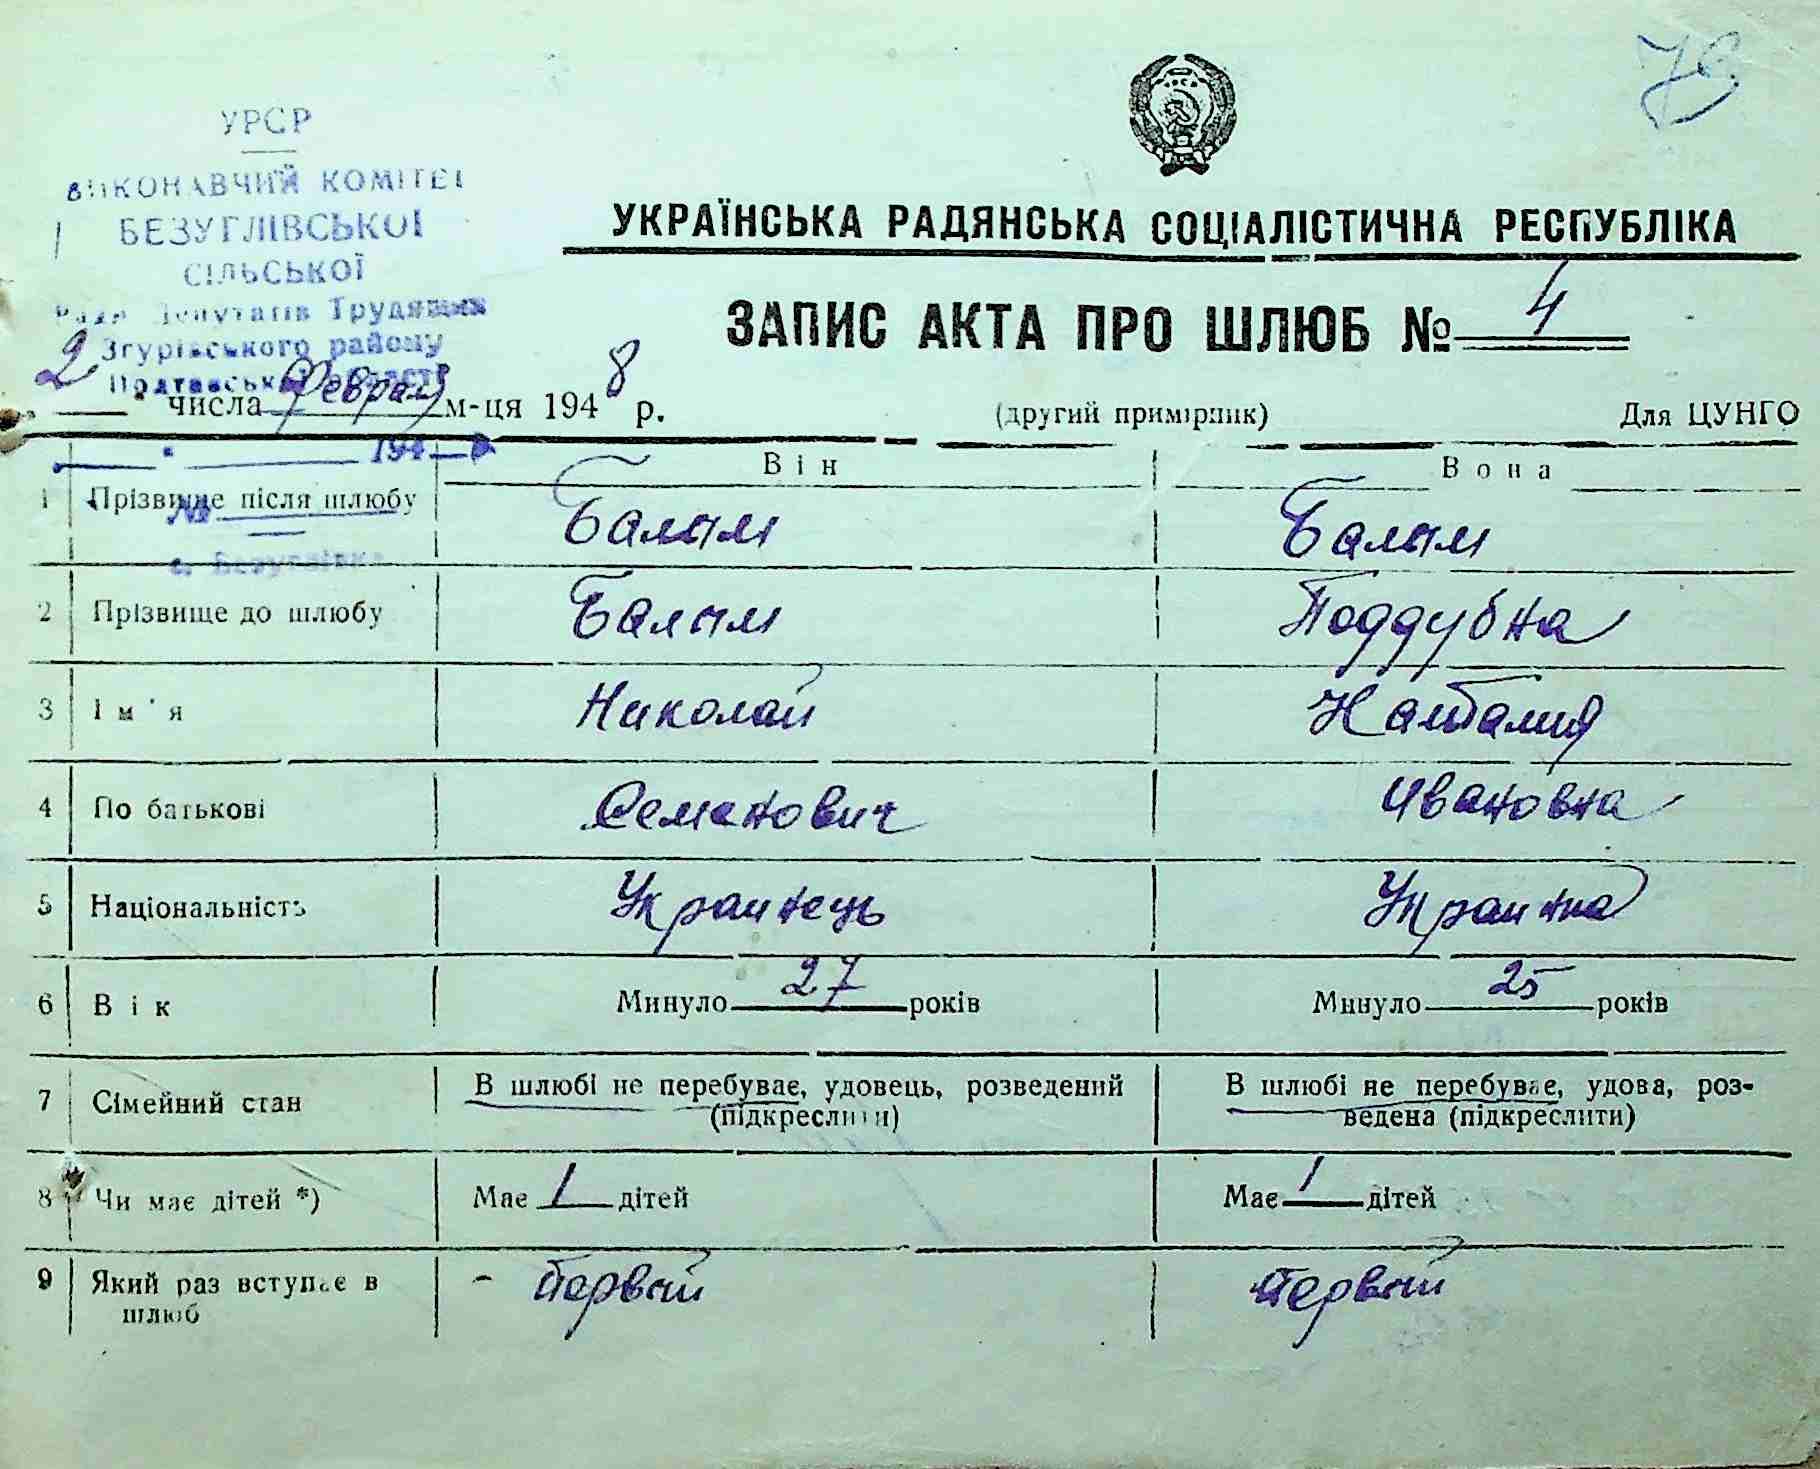 76
УРСР
ВИКОНАВЧИЙ КОМІТЕТ
БЕЗУГЛІВСЬКОЇ
СІЛЬСЬКОЇ
Ради Депутатів Трудящих
Згурівського району
Полтавської області
194 р
№
с. Безуглівка
УКРАЇНСЬКА РАДЯНСЬКА СОЦІАЛІСТИЧНА РЕСПУБЛІКА
ЗАПИС АКТА ПРО ШЛЮБ № 4
2 числа Февраля м-ця 1948 р.
(другий примірник)
Для ЦУНГО
Він Вона
1 Прізвище після шлюбу Балым Балым
2 Прізвище до шлюбу Балым Поддубна
3 Ім'я Николай Наталия
4 По батькові Семенович Ивановна
5 Національність Украинець Украинка
6 Вік Минуло 27 років Минуло 25 років
7 Сімейний стан В шлюбі не перебуває, удовець, розведений (підкреслити) В шлюбі не перебуває, удова, роз-
ведена (підкреслити)
8 Чи має дітей *) Має 1 дітей Має 1 дітей
9 Який раз вступає в шлюб - Первый Первый